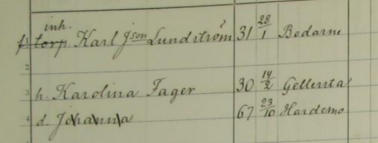 inh.
f. torp. Karl Json Lundström 31 28/1 Bodarne
2
3 h. Karolina Fager 30 14/2 Gellersta
4 d. Johanna 67 23/10 Hardemo